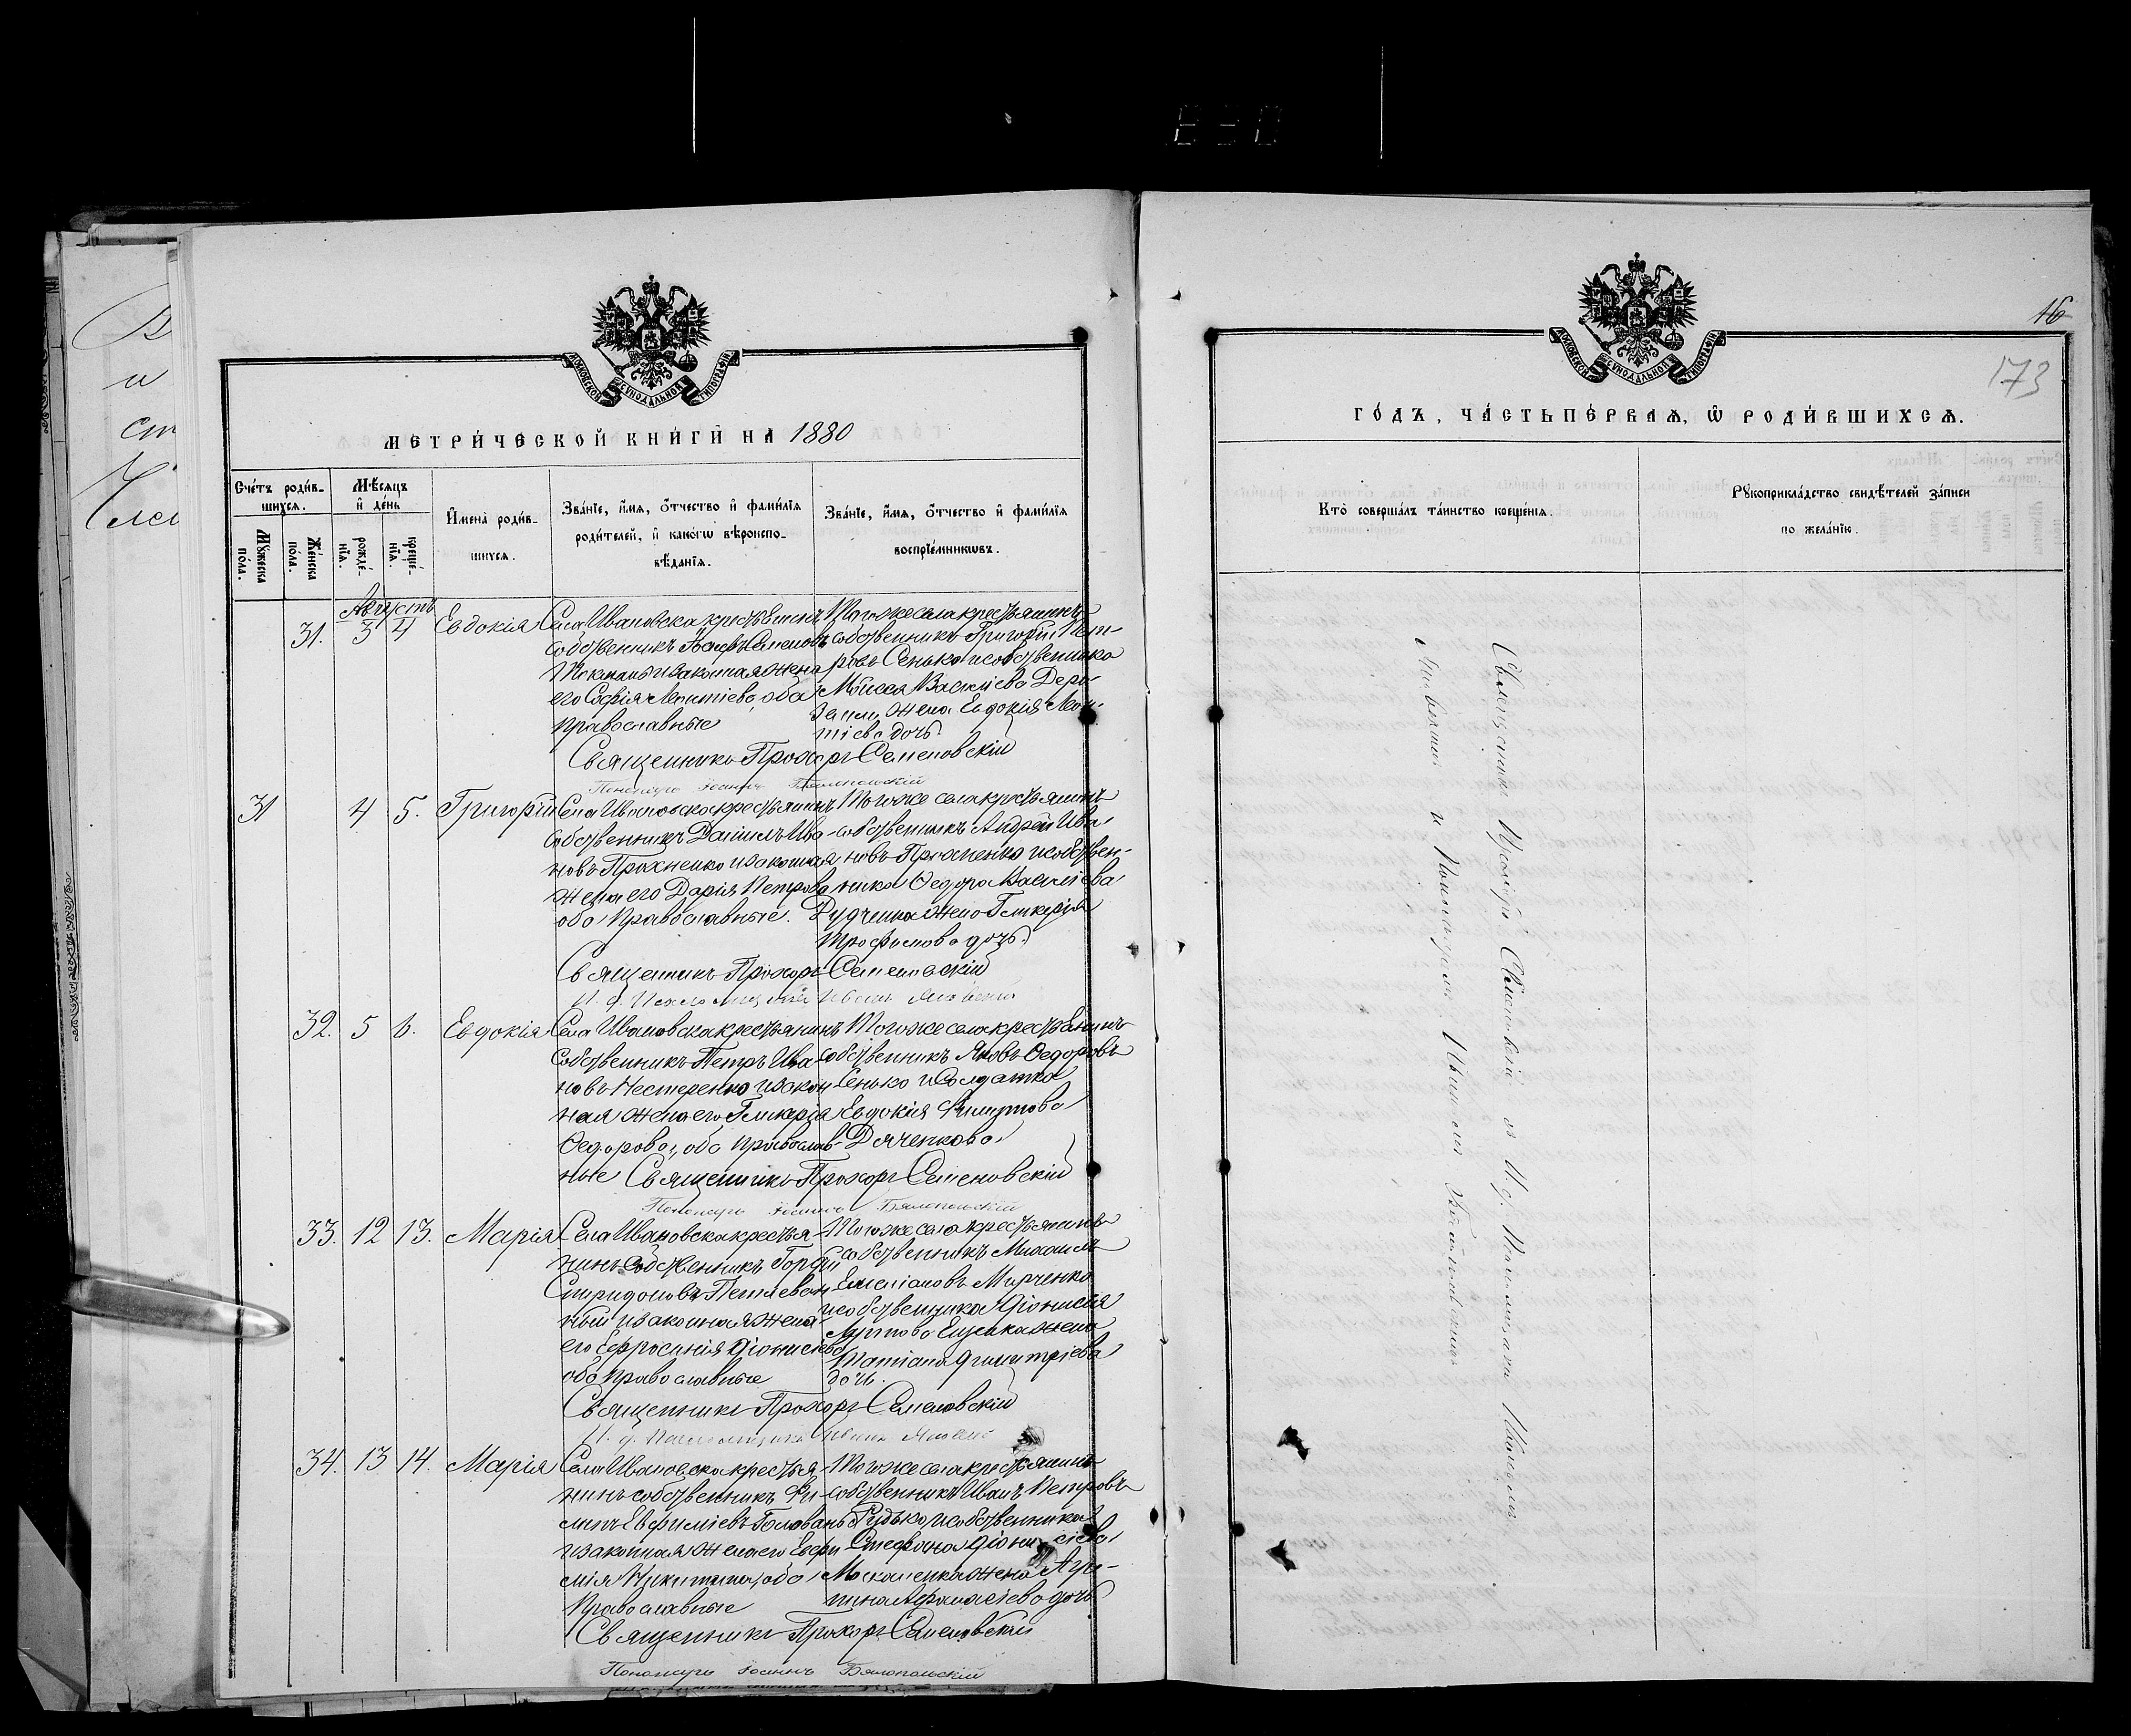 16
173
МОСКОВСКОЙ СУНОДАЛЬНОЙ ТИПОГРАФІИ
МЕТРИЧЕСКОЙ КНИГИ НА 1880
Счетъ родив-
шихся.
Мужеска пола.
Женска пола.
Мѣсяцъ и день
рожде-
нія.
креще-
нія.
Имена родив-
шихся.
Званіе, имя, отчество и фамилія
родителей, и какогѡ вѣроиспо-
вѣданія.
Званіе, имя, отчество и фамилія
воспріемникѡвъ.
Августъ
31. 3 4 Евдокія
Села Ивановска крестьянинъ
собственникъ Семеновъ
и законная жена
его Софія Леонтіева, оба
православные
Того же села крестьянинъ
собственникъ Григорій Пет-
ровъ Сенько и собственника
Моисея Василіева
жена Евдокія Леон-
тіева дочь
Священникъ Прохоръ Семеновскій
Пономарь Іоаннъ Бялопольскій
31 4 5. Григорій
Села Ивановска крестьянинъ
собственникъ Даніилъ Ива-
новъ Прохненко и законная
жена его Дарія Петрова
оба православные.
Того же села крестьянинъ
собственникъ Андрей Ива-
новъ Прохненко и собствен-
ника Ѳедора Василіева
Дудченка жена Гликерія
Трофимова дочь.
Священникъ Прохоръ Семеновскій
И. д. Псаломщика Иванъ Яковенко
32. 5 6. Евдокія
Села Ивановска крестьянинъ
собственникъ Петръ Ива-
новъ Нестеренко и закон-
ная жена его Гликерія
Ѳедорова, оба православ-
ные
Того же села крестьянинъ
собственникъ Яковъ Ѳедоровъ
Сенько и Солдатка
Евдокія Филиппова
Дяченкова
Священникъ Прохоръ Семеновскій
Пономарь Іоаннъ Бялопольскій
33. 12 13. Марія
Села Ивановска крестья-
нинъ собственникъ Гордій
Спиридоновъ
ный и законная жена
его Ефросинія Діонисіева
оба православные
Того же села крестьянинъ
собственникъ Михаилъ
Емеліановъ Марченко
и собственника Діонисія
Ещенка жена
Татіана Димитріева
дочь.
Священникъ Прохоръ Семеновскій
И. д. Псаломщика Иванъ
34. 13 14. Марія
Села Ивановска крестья-
нинъ собственникъ Фи-
липъ Евфиміевъ Голованъ
и законная жена его Евфи-
мія Никитина, оба
православные
Того же села крестьянинъ
собственникъ Иванъ Петровъ
Рудько и собственника
Стефана Діонисіева
Москаленка жена Агри-
пина Афанасіева дочь
Священникъ Прохоръ Семеновскій
Пономарь Іоаннъ Бялопольскій
МОСКОВСКОЙ СУНОДАЛЬНОЙ ТИПОГРАФІИ
ГОДЪ, ЧАСТЬ ПЕРВАЯ, Ѡ РОДИВШИХСЯ.
Кто совершалъ таинство крещенія.
Рукоприкладство свидѣтелей записи
по желанію.
Священникъ Прохоръ Семеновскій съ И. д. Псаломщика Иваномъ
и Пономаремъ